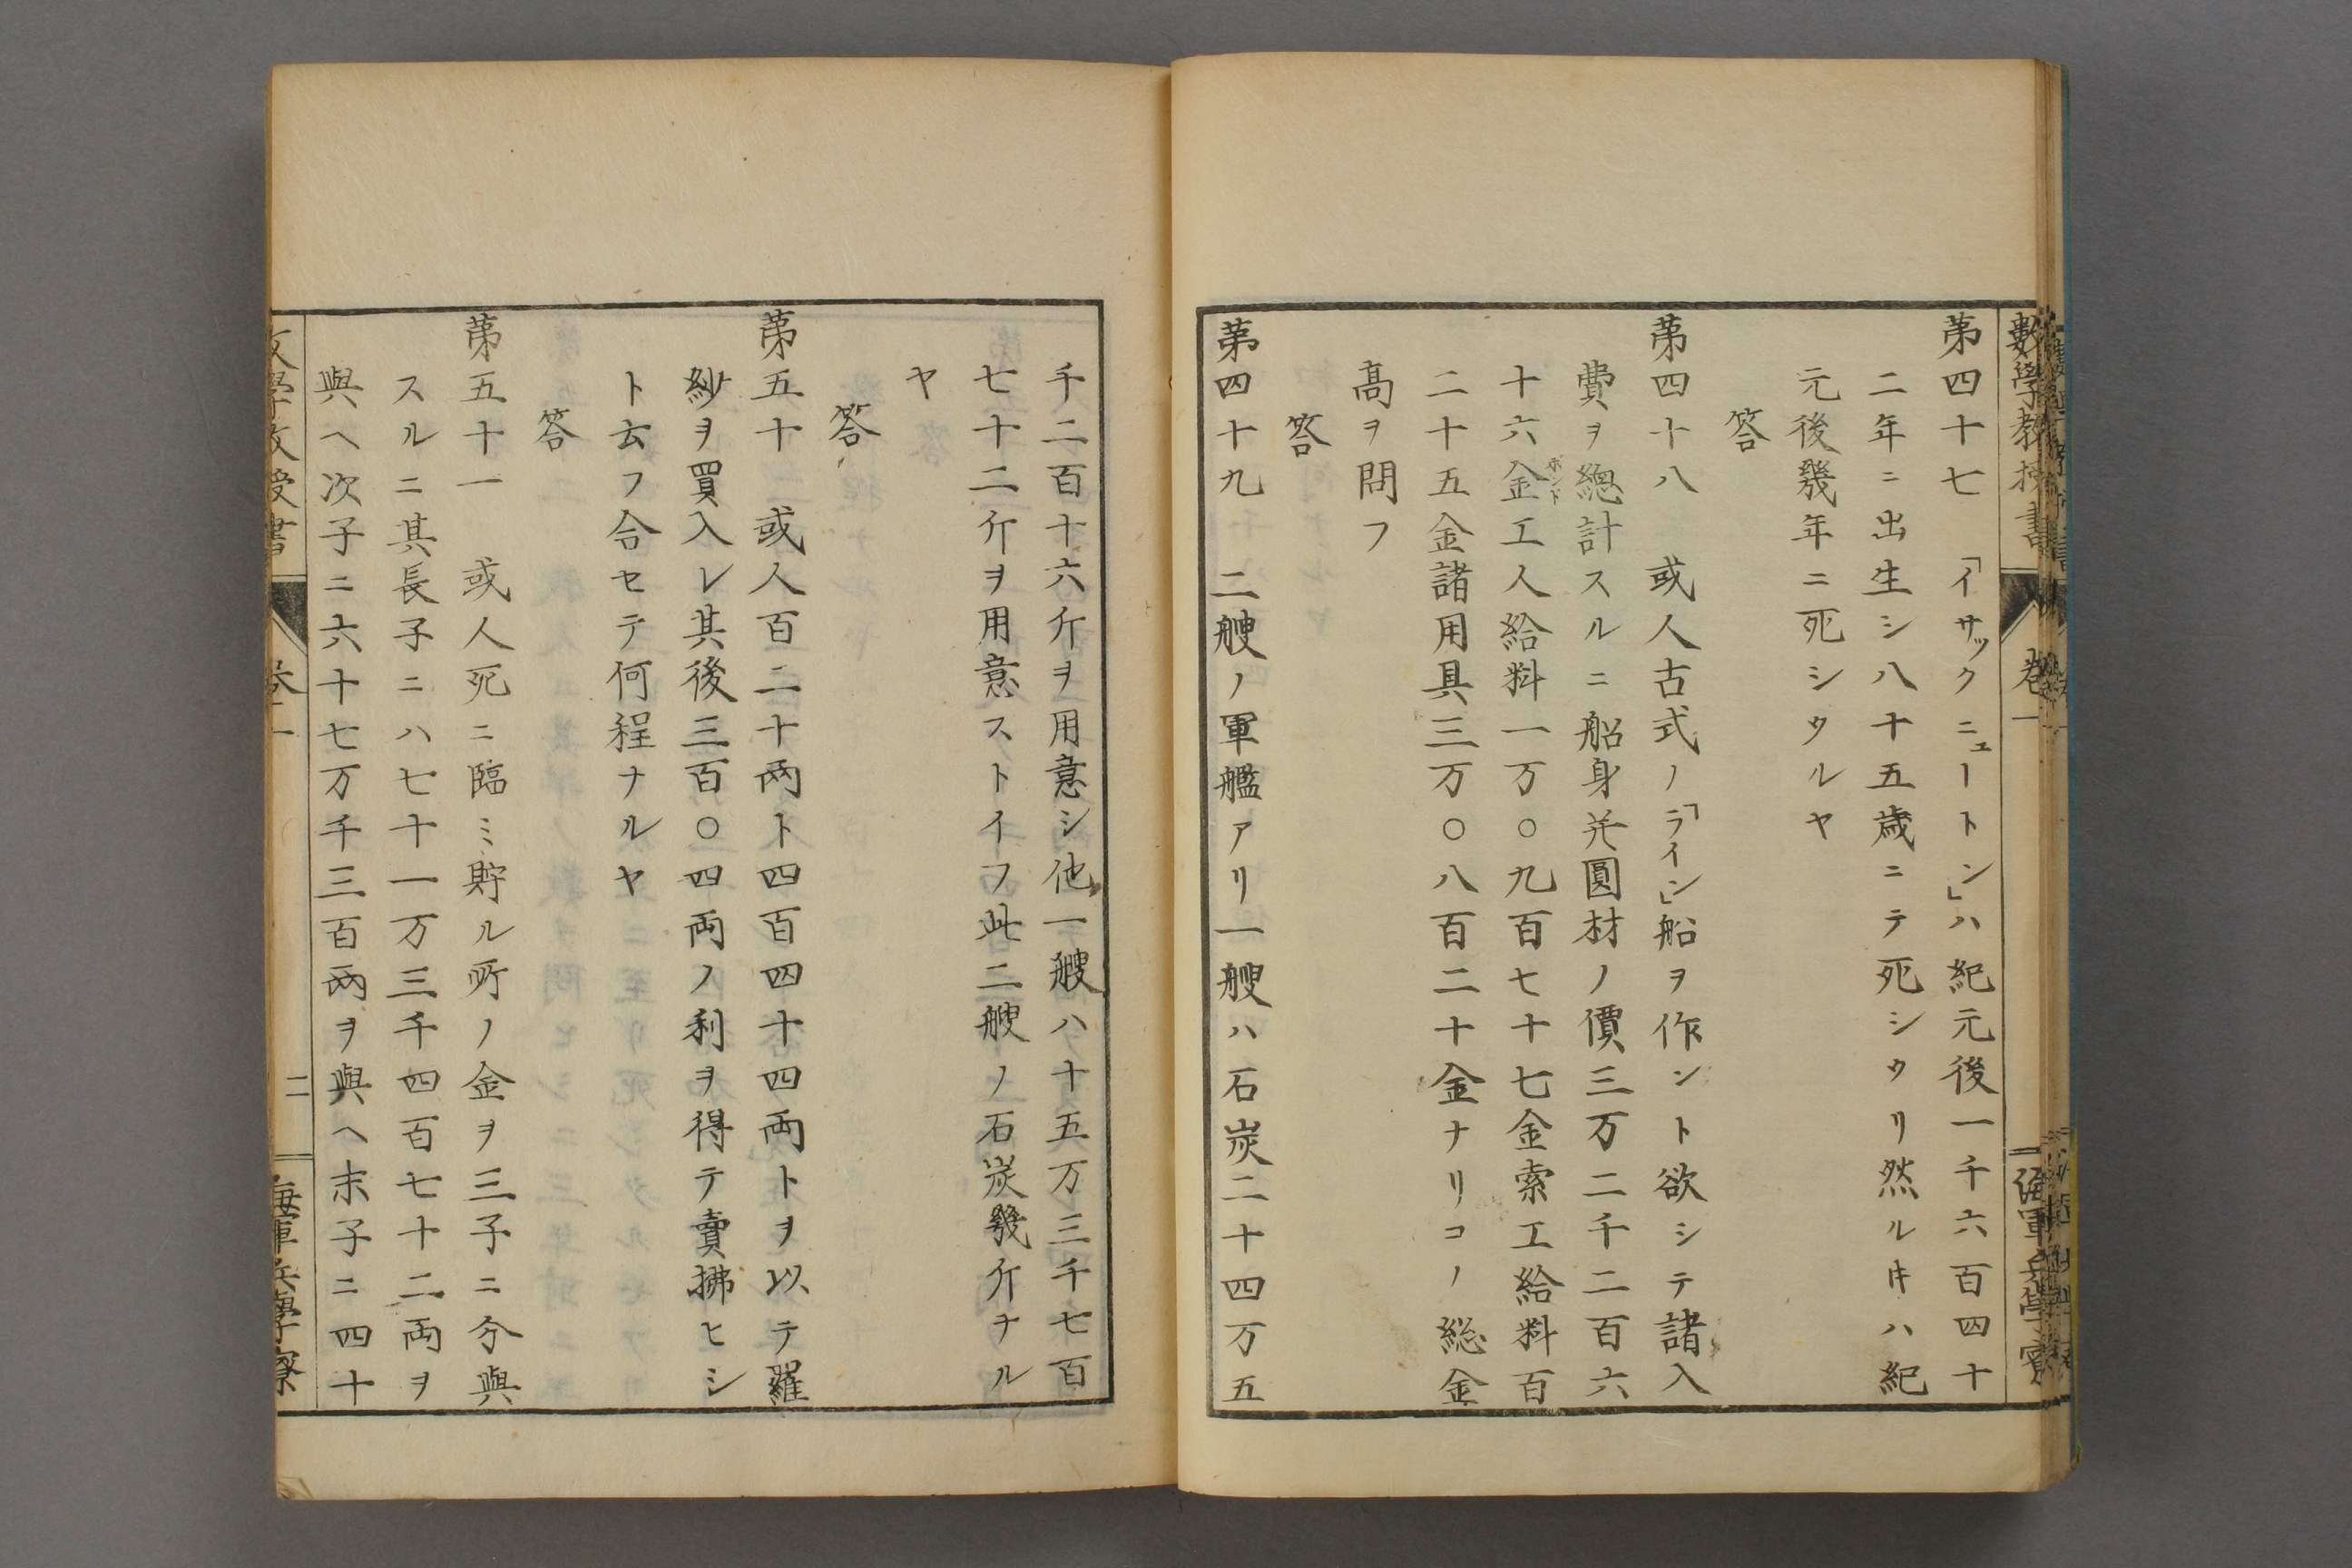 數學教授書 卷一
第四十七 「イサックニュートン」ハ紀元後一千六百四十
二年ニ出生シ八十五歳ニテ死シタリ然ルキハ紀
元後幾年ニ死シタルヤ
答
第四十八 或人古式ノ「ライン」船ヲ作ント欲シテ諸入
費ヲ總計スルニ船身并圓材ノ價三万二千二百六
十六金工人給料一万〇九百七十七金索工給料百
ポンド
二十五金諸用具三万〇八百二十金ナリコノ総金
高ヲ問フ
答
第四十九 二艘ノ軍艦アリ一艘ハ石炭二十四万五
千二百十六斤ヲ用意シ他一艘ハ十五万三千七百
七十二斤ヲ用意ストイフ此二艘ノ石炭幾斤ナル
ヤ
答
第五十 或人百二十兩ト四百四十四両トヲ以テ羅
紗ヲ買入レ其後三百〇四両ノ利ヲ得テ賣拂ヒシ
ト云フ合セテ何程ナルヤ
答
第五十一 或人死ニ臨ミ貯ル所ノ金ヲ三子ニ分與
スルニ其長子ニハ七十一万三千四百七十二両ヲ
與ヘ次子ニ六十七万千三百兩ヲ與ヘ末子ニ四十
二 海軍兵學寮